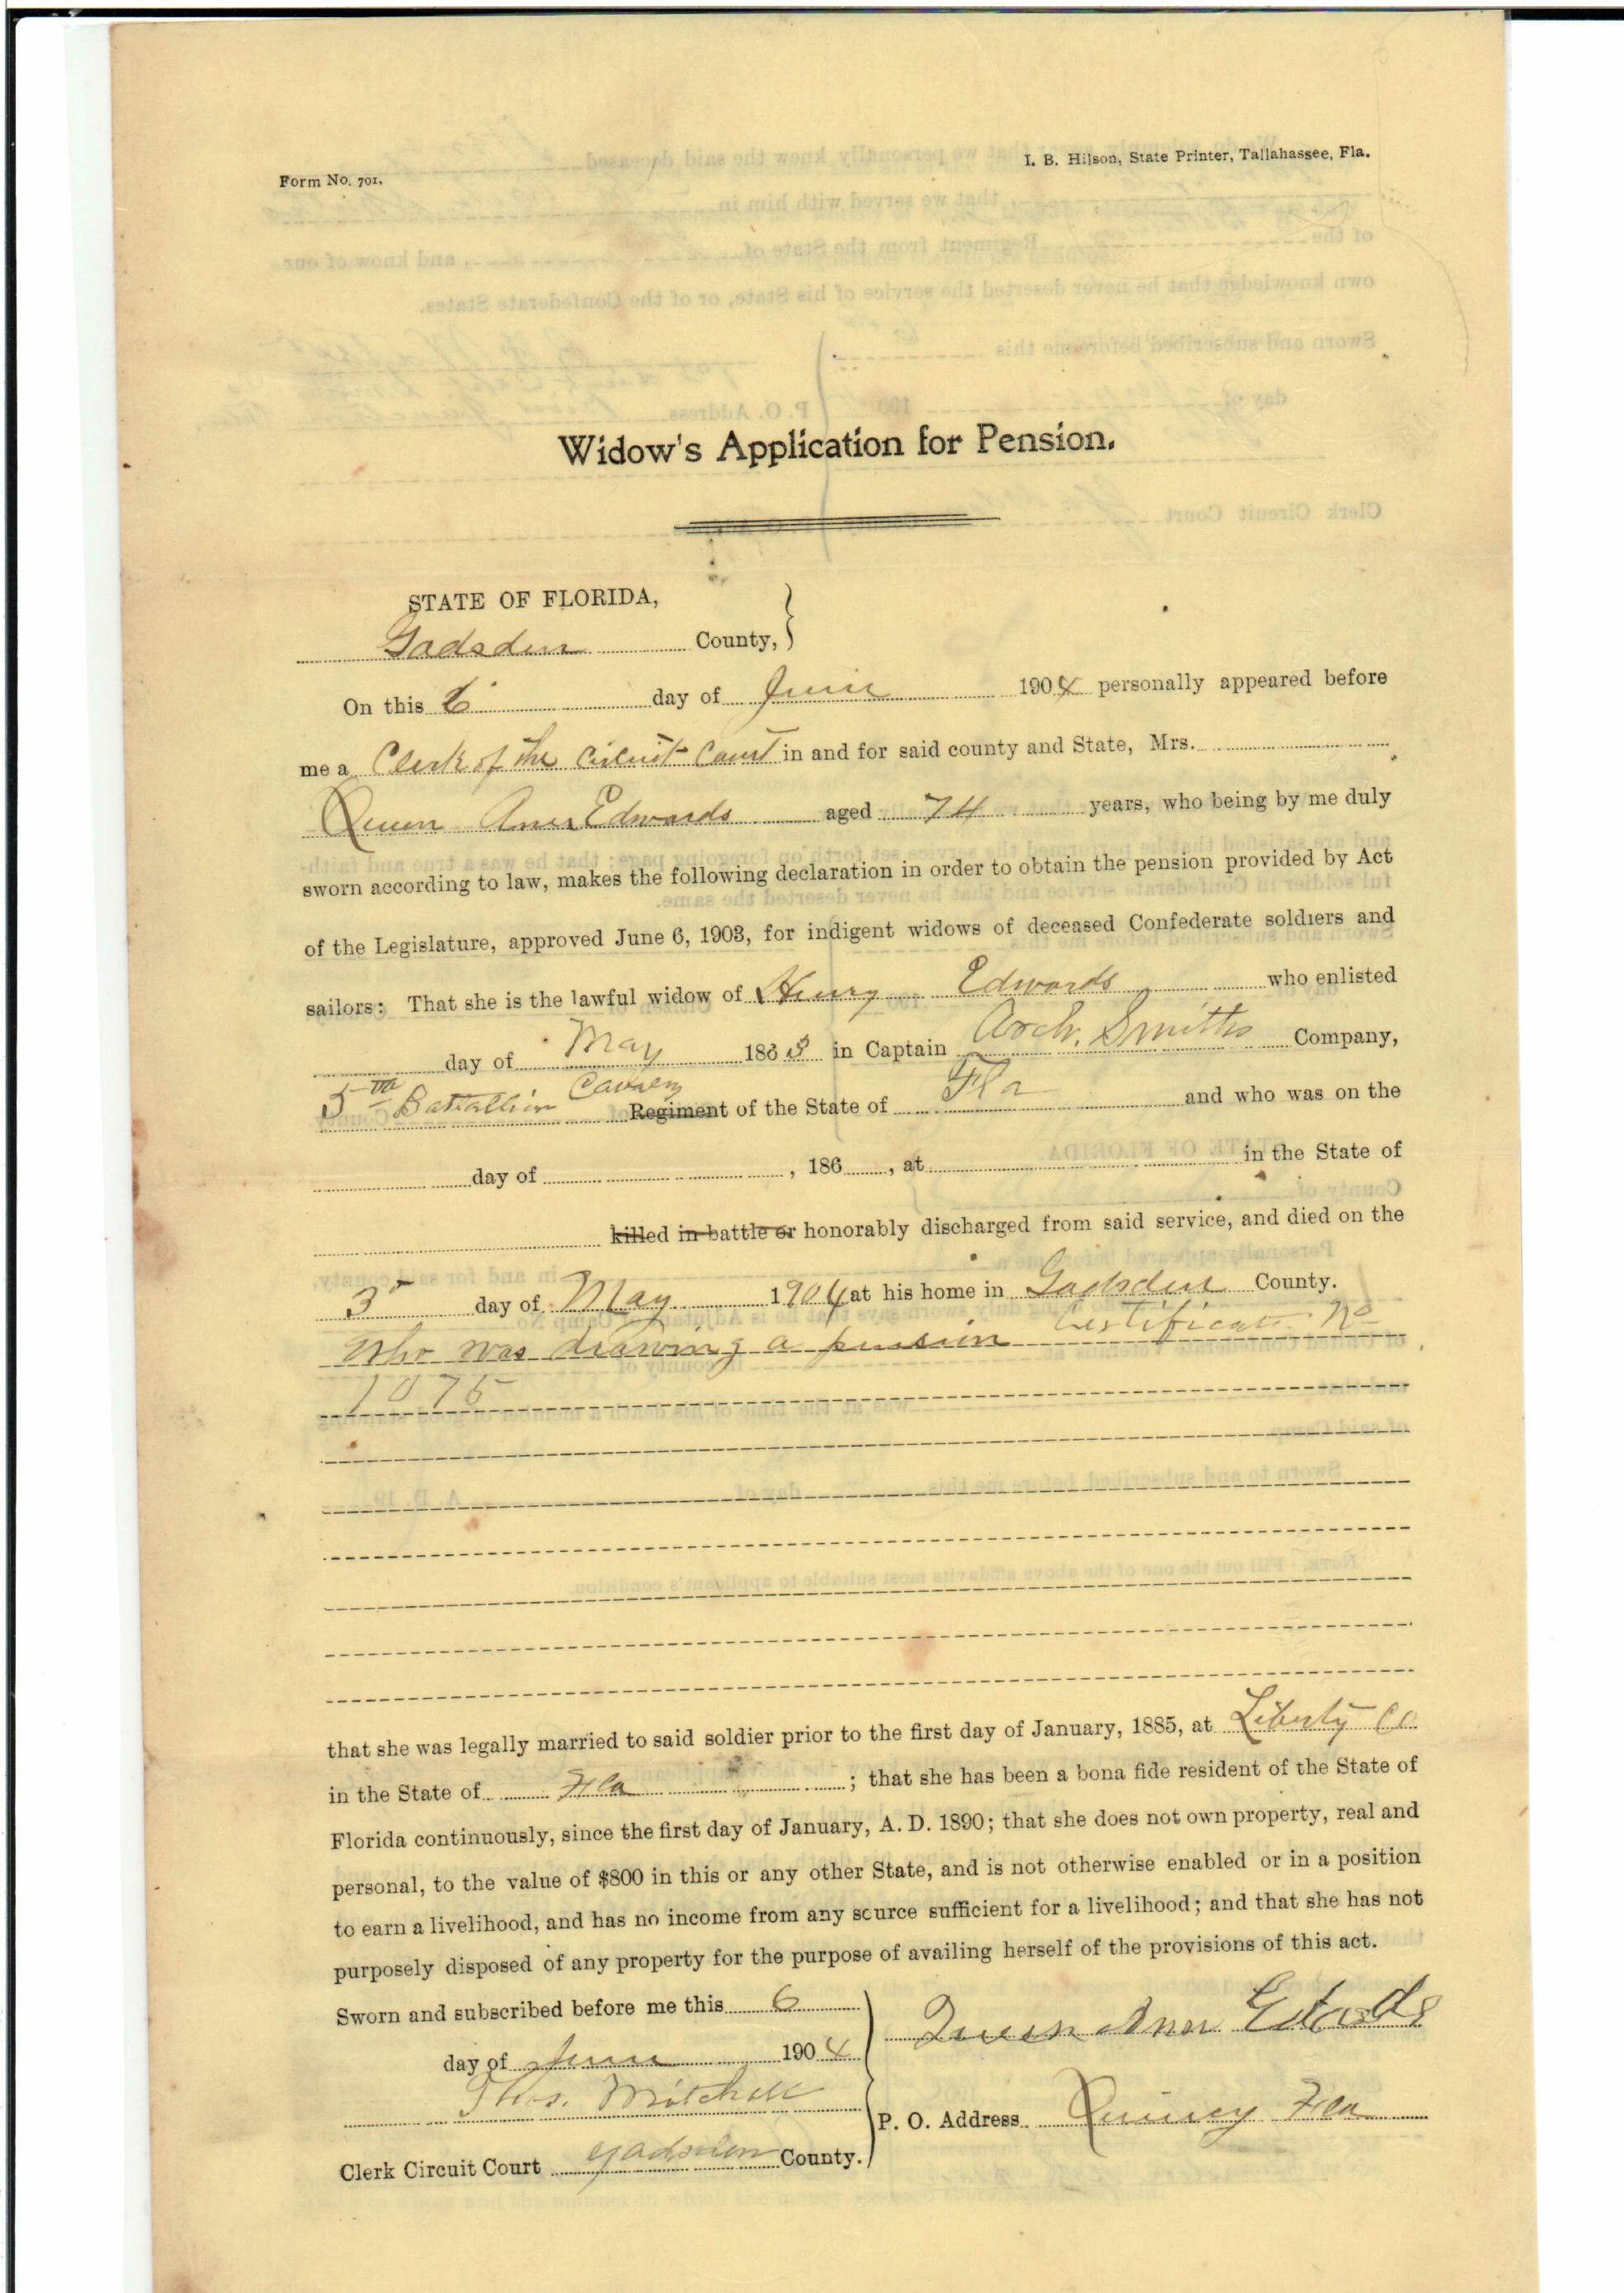 Form No. 701.
I. B. Hilson, State Printer, Tallahassee, Fla.
Widow's Application for Pension.
STATE OF FLORIDA,
Gadsden County,
On this 6 day of June 1904 personally appeared before
me a Clerk of the Circuit Court in and for said county and State, Mrs.
Queen Anner Edwards aged 74 years, who being by me duly
sworn according to law, makes the following declaration in order to obtain the pension provided by Act
of the Legislature, approved June 6, 1903, for indigent widows of deceased Confederate soldiers and
sailors: That she is the lawful widow of Henry Edwards who enlisted
day of May 1863 in Captain Arch. Smiths Company,
5th Battallion Cavalry Regiment of the State of Fla and who was on the
day of , 186 , at in the State of
killed in battle or honorably discharged from said service, and died on the
3 day of May 1904 at his home in Gadsden County.
Who was drawing a pension Certificate No
1075
that she was legally married to said soldier prior to the first day of January, 1885, at Liberty Co
in the State of Fla ; that she has been a bona fide resident of the State of
Florida continuously, since the first day of January, A. D. 1890; that she does not own property, real and
personal, to the value of $800 in this or any other State, and is not otherwise enabled or in a position
to earn a livelihood, and has no income from any source sufficient for a livelihood; and that she has not
purposely disposed of any property for the purpose of availing herself of the provisions of this act.
Sworn and subscribed before me this 6
day of June 1904
Thos. Mitchell
Clerk Circuit Court Gadsden County.
Queen Anner Edwards
P. O. Address Quincy Fla